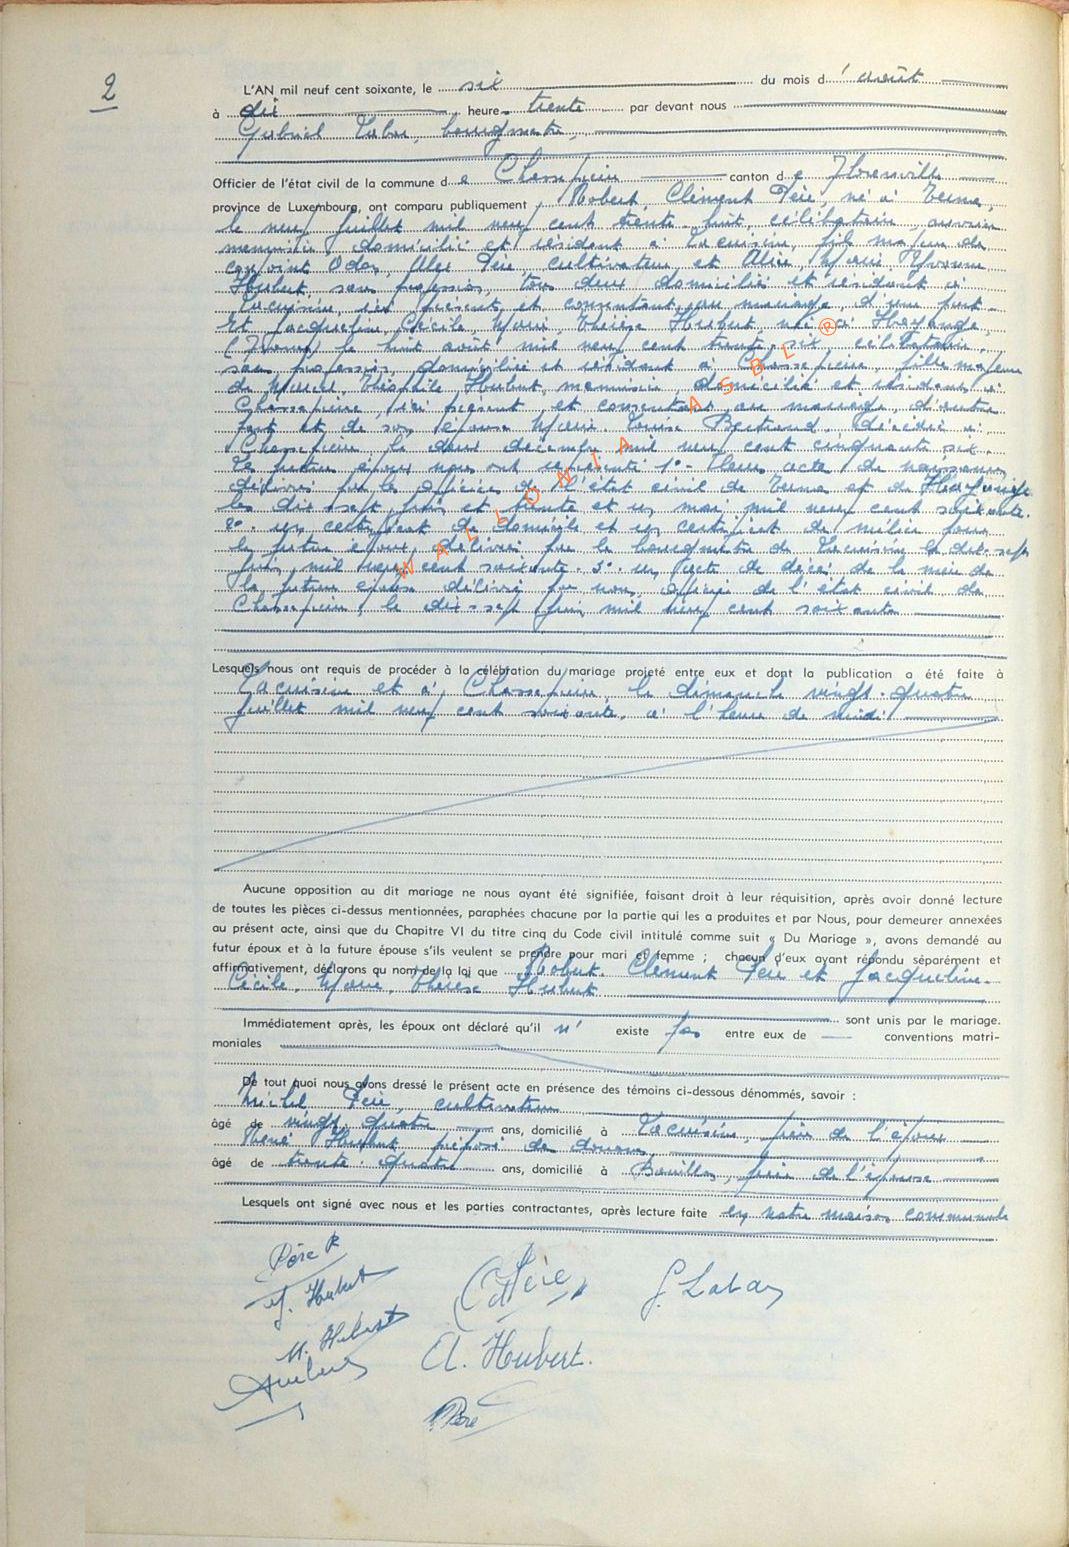 2
L'AN mil neuf cent soixante, le six du mois d'août
à dix heures trente par devant nous
Gabriel Labar, bourgmestre,
Officier de l'état civil de la commune de Chassepierre canton de Florenville
province de Luxembourg, ont comparu publiquement Robert, Clément Père, né à Termes,
le neuf juillet mil neuf cent trente huit, célibataire, ouvrier
menuisier domicilié et résidant à Lacuisine, fils majeur de
conjoint Odon, père cultivateur et Alice Marie Yvonne
Hubert, sans profession, tous deux domiciliés et résidant à
Lacuisine, ici présent, et consentant au mariage, d'une part
Et Jacqueline, Cécile, Marie, Thérèse Hubert, née à Hayange,
(France) le huit août mil neuf cent trente-six célibataire,
sans profession, domiciliée et résidant à Chassepierre, fille majeure
de Marcel Théophile Hubert, menuisier domicilié et résidant à
Chassepierre, ici présent et consentant au mariage, d'autre
part et de son épouse Marie. Louise Bertrand, décédée à
Chassepierre le deux décembre mil neuf cent cinquante six.
Les futurs époux nous ont représenté 1°- Leurs acte de naissance
délivrés par les officiers de l'état civil de Termes et de Hayange
les dix-sept juin et trente et un mai mil neuf cent soixante.
2°. un certificat de domicile et un certificat de milice pour
le futur époux, délivrés par le bourgmestre de Lacuisine le dix-sept
juin mil neuf cent soixante. 3°. un acte de décès de la mère de
la future épouse délivré par nous, officier de l'état civil de
Chassepierre, le dix-sept juin mil neuf cent soixante
Lesquels nous ont requis de procéder à la célébration du mariage projeté entre eux et dont la publication a été faite à
Lacuisine et à Chassepierre, le dimanche vingt-quatre
juillet mil neuf cent soixante, à l'heure de midi
Aucune opposition au dit mariage ne nous ayant été signifiée, faisant droit à leur réquisition, après avoir donné lecture
de toutes les pièces ci-dessus mentionnées, paraphées chacune par la partie qui les a produites et par Nous, pour demeurer annexées
au présent acte, ainsi que du Chapitre VI du titre cinq du Code civil intitulé comme suit « Du Mariage », avons demandé au
futur époux et à la future épouse s'ils veulent se prendre pour mari et femme ; chacun d'eux ayant répondu séparément et
affirmativement, déclarons qu nom de la loi que Robert. Clément Père et Jacqueline.
Cécile. Marie, Thérèse Hubert
sont unis par le mariage.
Immédiatement après, les époux ont déclaré qu'il n' existe pas entre eux de conventions matri-
moniales
De tout quoi nous avons dressé le présent acte en présence des témoins ci-dessous dénommés, savoir :
Michel Père, cultivateur
âgé de vingt-quatre ans, domicilié à Lacuisine, frère de l'époux
René Hubert préposé de douane,
âgé de trente-quatre ans, domicilié à Bouillon, frère de l'épouse
Lesquels ont signé avec nous et les parties contractantes, après lecture faite en notre maison communale
Père R
J. Hubert
Père
G. Labar
M. Hubert
A. Hubert.
Hubert
Père
WALLONIA ASBL ®